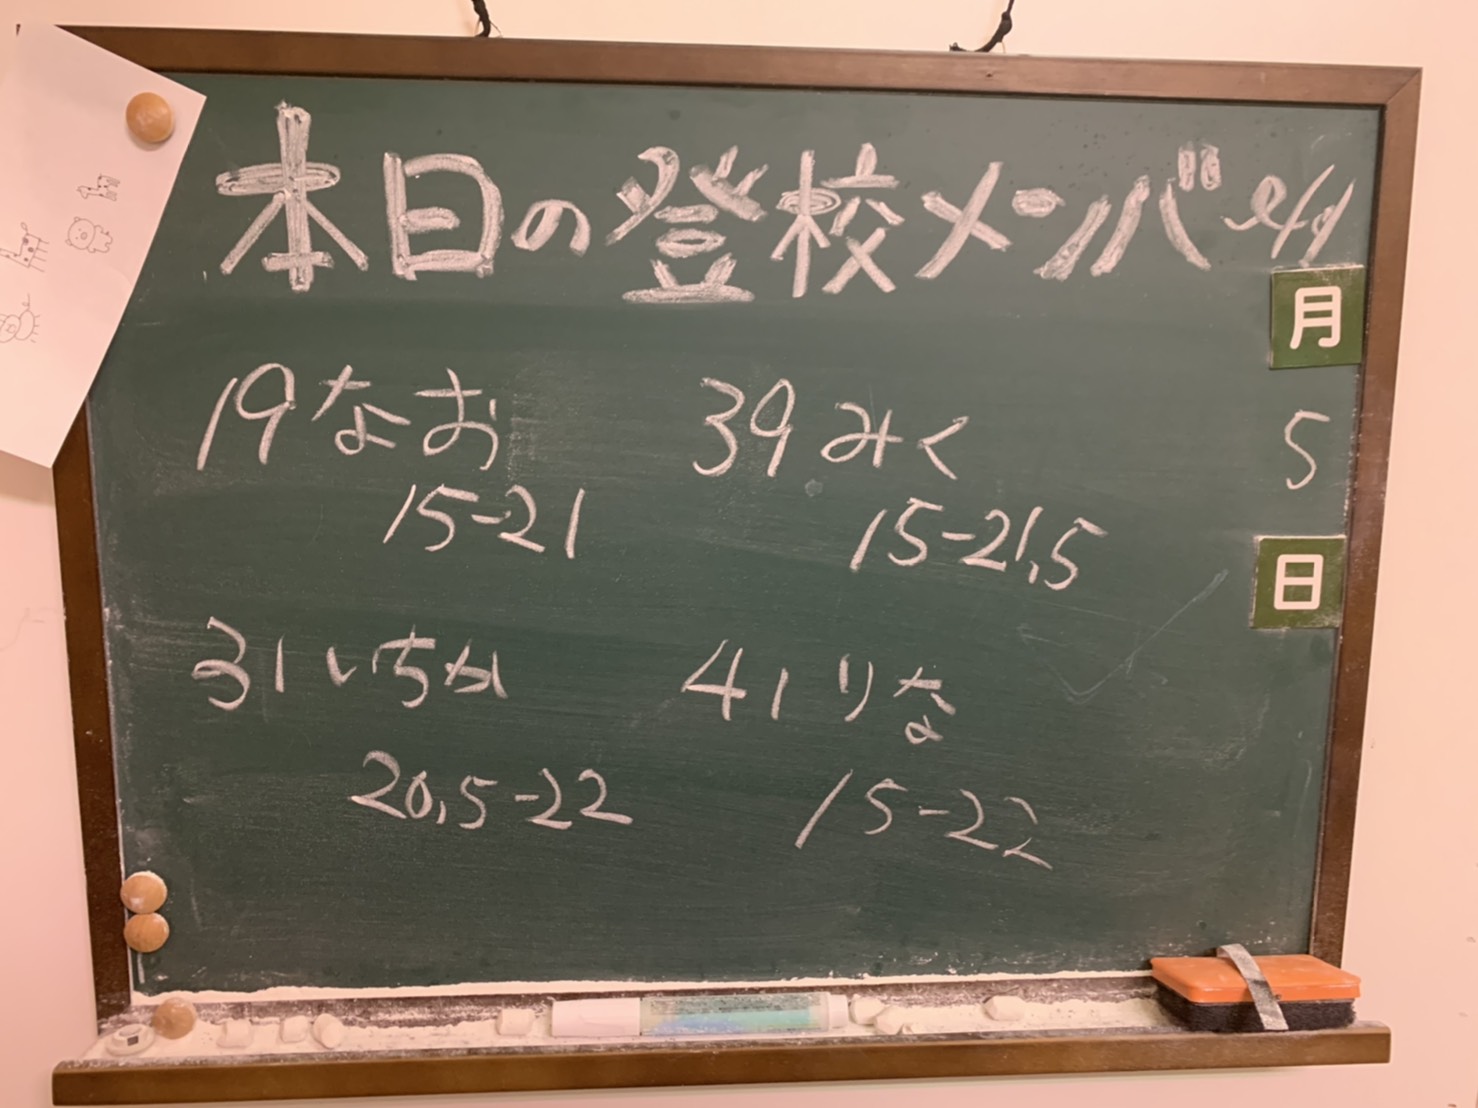 本日の登校メンバー
月
5
日
19 なお
15-21
39 みく
15-21,5
31 いちか
20,5-22
41 りな
15-22